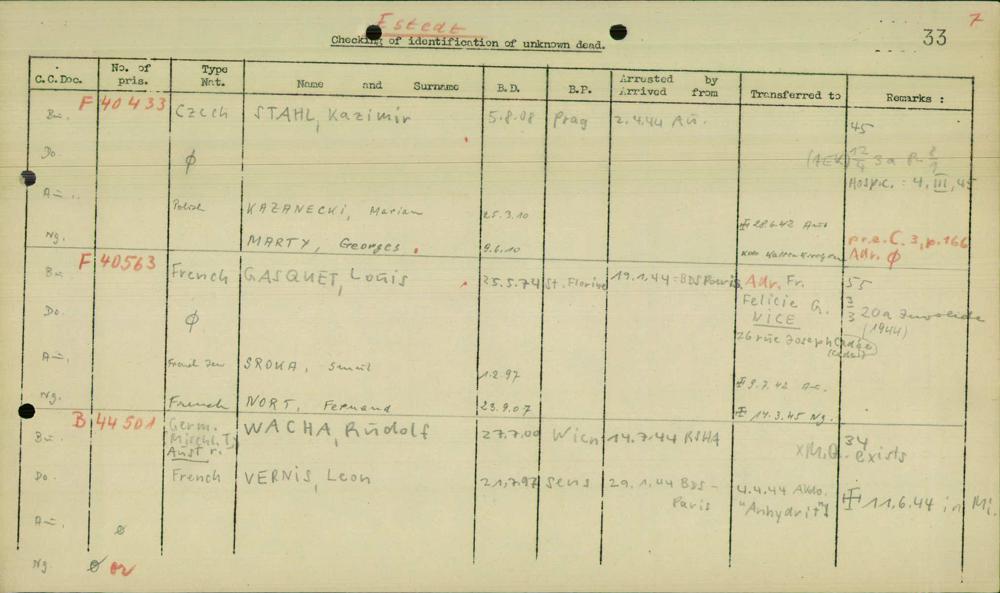 7
Estedt
33
Checking of identification of unknown dead.
C.C.Doc. No. of pris. Type Nat. Name and Surname B.D. B.P. Arrested by Arrived from Transferred to Remarks :
F 40433
Bu. Czech STAHL, Kazimir 5.8.08 Prag 2.4.44 Au. 45
Do. ϕ 12/4 3a
Hospic. : 4.III.45
Au. Polish KAZANECKI, Marian 25.3.10 28.6.42
Ng. MARTY, Georges. 9.6.10 C. 3, p. 166
Adr. ϕ
F 40563
Bu. French GASQUET, Louis 25.5.74 St. Florine 19.1.44 = BDS Paris Adr. Fr. 55
Felicie G. 3/3 20a
Do. ϕ NICE (1944)
26 rue Joseph
Au. French Jew SROKA, 1.2.97 9.7.42 Au.
Ng. French NORT, Fernand 23.9.07 14.3.45 Ng.
B 44501
Bu. Germ. Mischl. WACHA, Rudolf 27.7.00 Wien 14.7.44 RSHA 34
Austr. exists
Do. French VERNIS, Leon 21.7.97 Sens 29.1.44 BDS - 4.4.44 Akdo. 11.6.44 in Mi.
Paris "Anhydrit"
Au. ø
Ng. ø